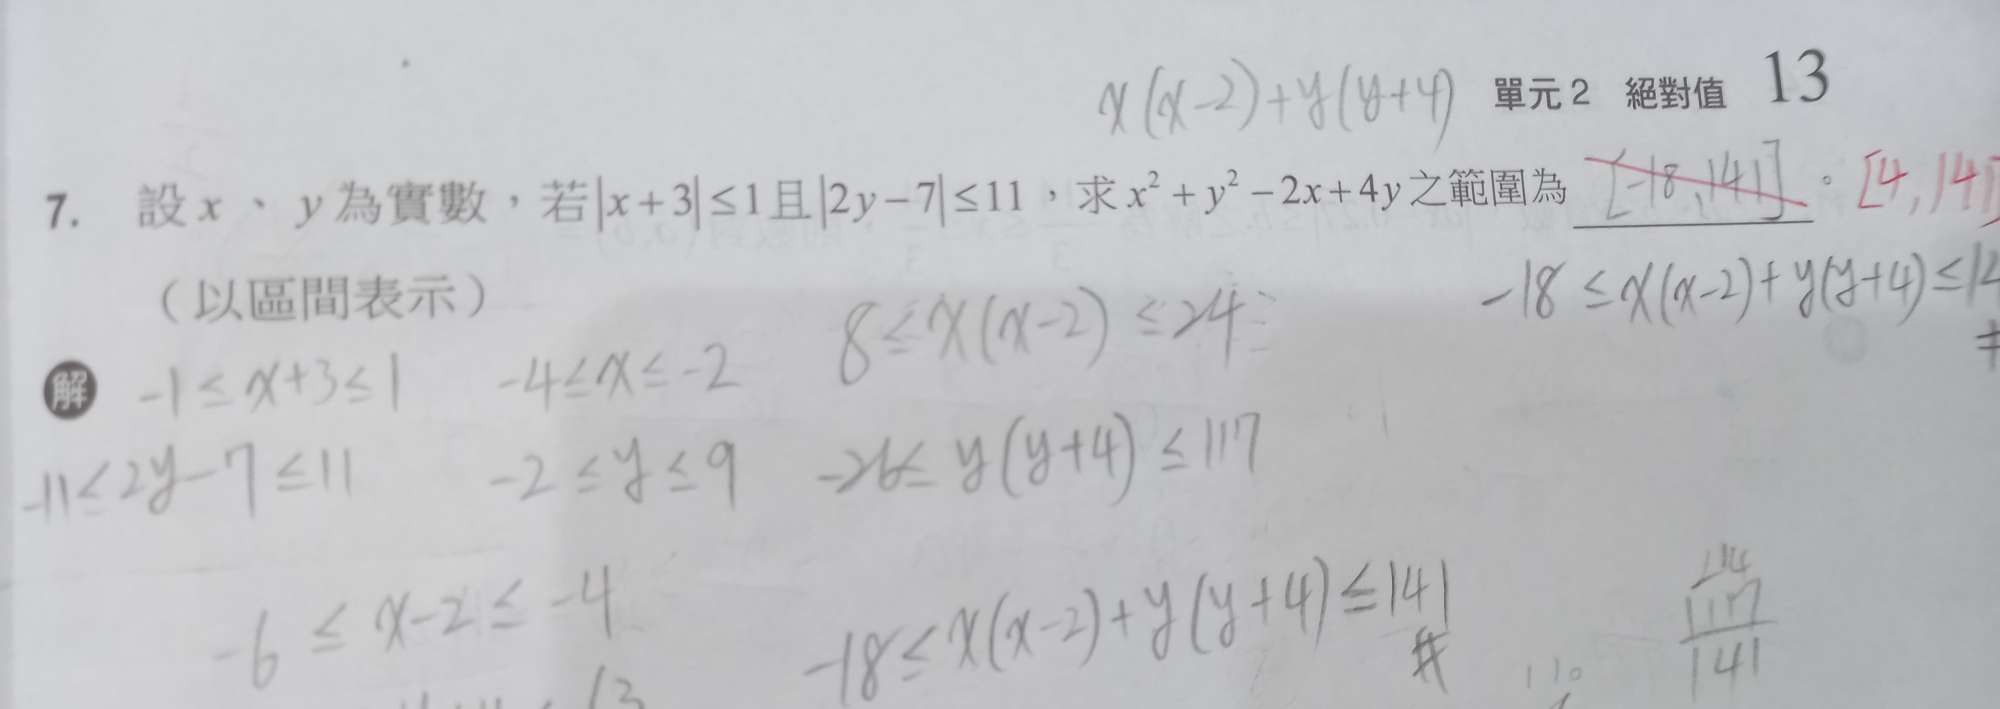 x(x-2)+y(y+4) 單元2 絕對值 13
7. 設x、y為實數，若|x+3|≤1且|2y-7|≤11，求x²+y²-2x+4y之範圍為 [-18,141]。[4,141]
（以區間表示） -18≤x(x-2)+y(y+4)≤14
8≤x(x-2)≤24
解 -1≤x+3≤1 -4≤x≤-2
-11≤2y-7≤11 -2≤y≤9 -26≤y(y+4)≤117
-6≤x-2≤-4 -18≤x(x-2)+y(y+4)≤141
117
141